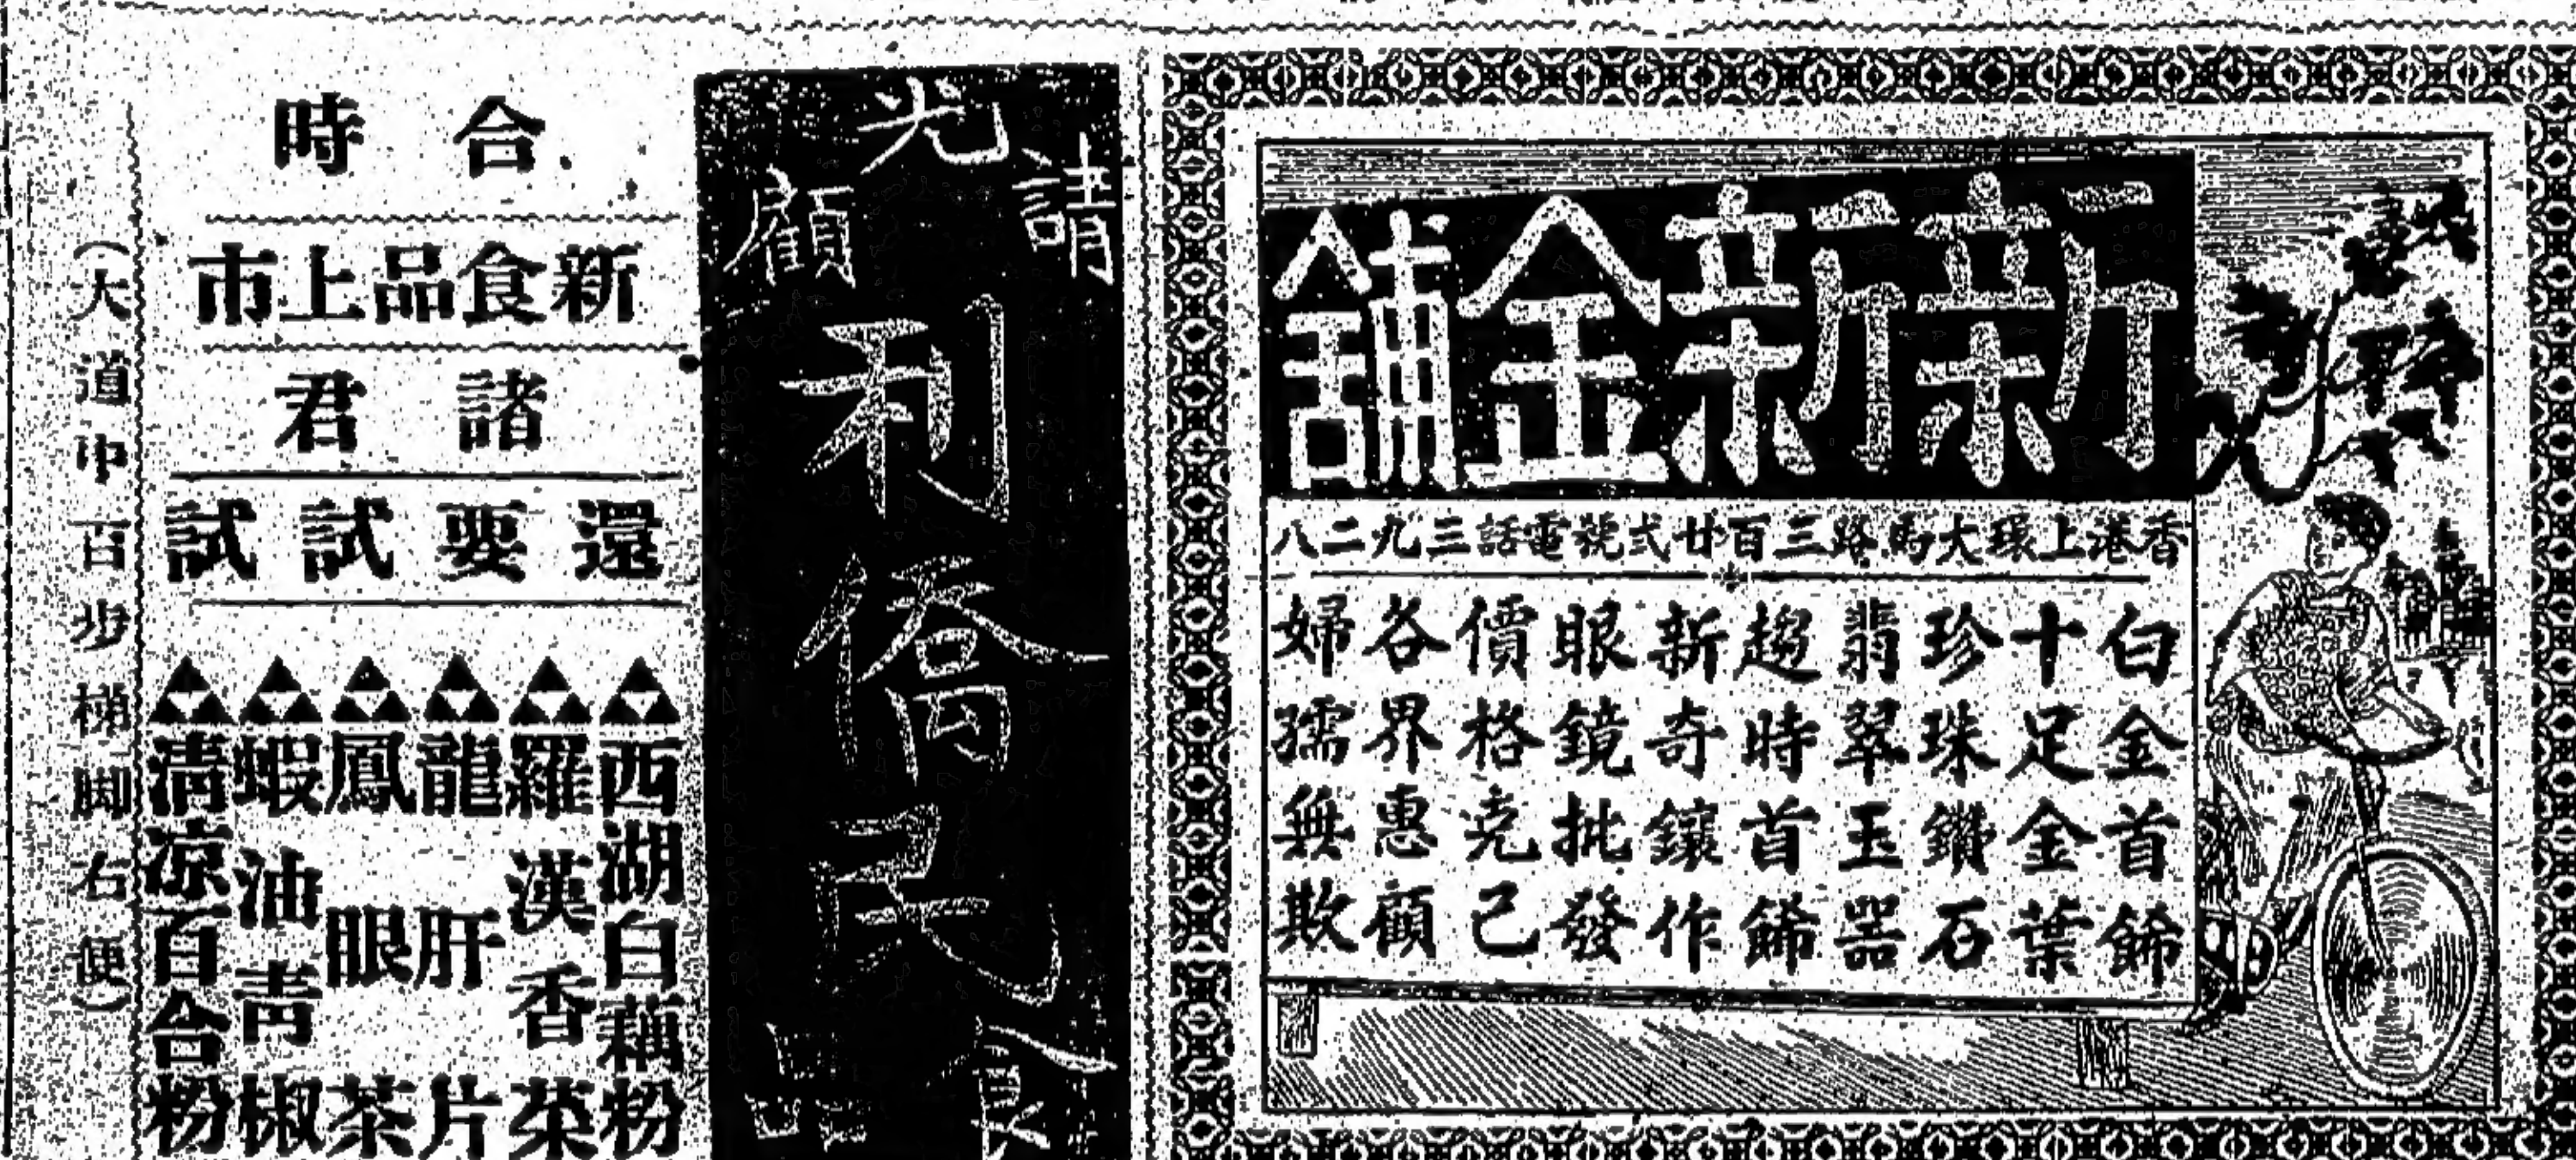 新新金舖
香港上環大馬路三百廿弍號電話三九二八
白金首飾
十足金葉
珍珠鑽石
翡翠玉器
趨時首飾
新奇鑲作
眼鏡批發
價格克己
各界惠顧
婦孺無欺
請光顧
利僑民
食品
合時
新食品上市
諸君
還要試試
西湖白藕粉
羅漢香菜
龍肝片
鳳眼茶
蝦油青椒
清凉百合粉
(大道中百步梯脚右便)